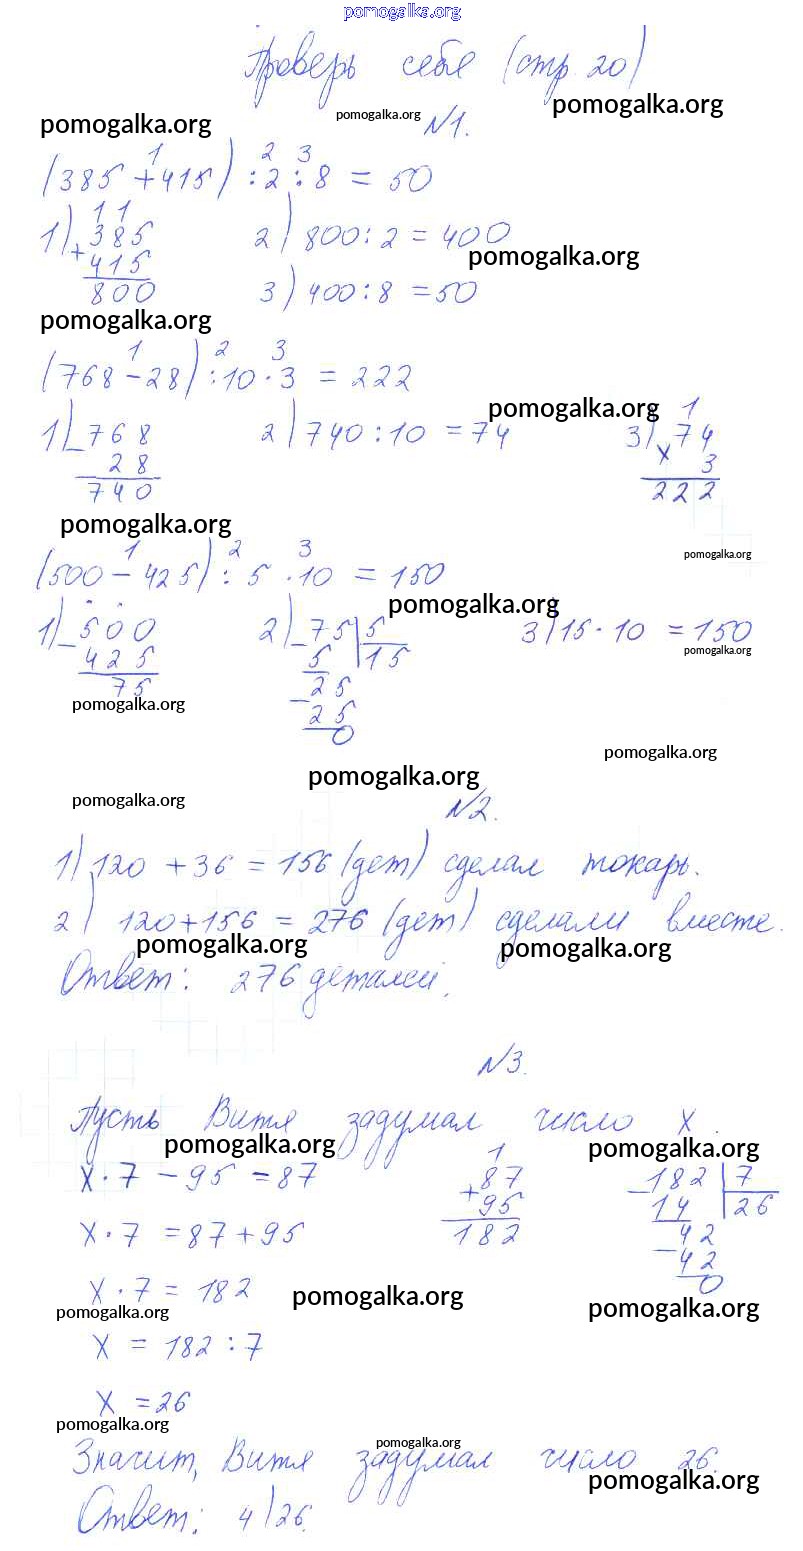 pomogalka.org
Проверь себе (стр. 20)
pomogalka.org
pomogalka.org pomogalka.org
№1.
1 2 3
(385 + 415) : 2 : 8 = 50
1 1
1) 385 2) 800 : 2 = 400
+
415 pomogalka.org
800 3) 400 : 8 = 50
pomogalka.org
1 2 3
(768 - 28) : 10 · 3 = 222
pomogalka.org 1
1) 768 2) 740 : 10 = 74 3) 74
- ×
28 3
740 222
pomogalka.org
pomogalka.org
1 2 3
(500 - 425) : 5 · 10 = 150
pomogalka.org
1) 500 2) 75 5 3) 15 · 10 = 150
- -
425 5 15 pomogalka.org
75 25
pomogalka.org -
25
0
pomogalka.org
pomogalka.org
pomogalka.org
№2.
1) 120 + 36 = 156 (дет) сделал токарь.
2) 120 + 156 = 276 (дет) сделали вместе.
pomogalka.org pomogalka.org
Ответ: 276 деталей.
№3.
Пусть Витя задумал число x.
pomogalka.org pomogalka.org
x · 7 - 95 = 87 1
87 - 182 7
+ 95 14 26
x · 7 = 87 + 95 182 42
- 42
0
x · 7 = 182 pomogalka.org
pomogalka.org pomogalka.org
x = 182 : 7
x = 26
pomogalka.org
pomogalka.org
Значит, Витя задумал число 26.
pomogalka.org
Ответ: 4) 26.